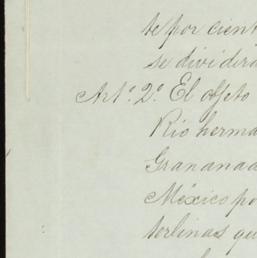 te por cient
se dividirá
Art.º 2.º El objeto
Rio herma
Grananad
México po
terlinas qu